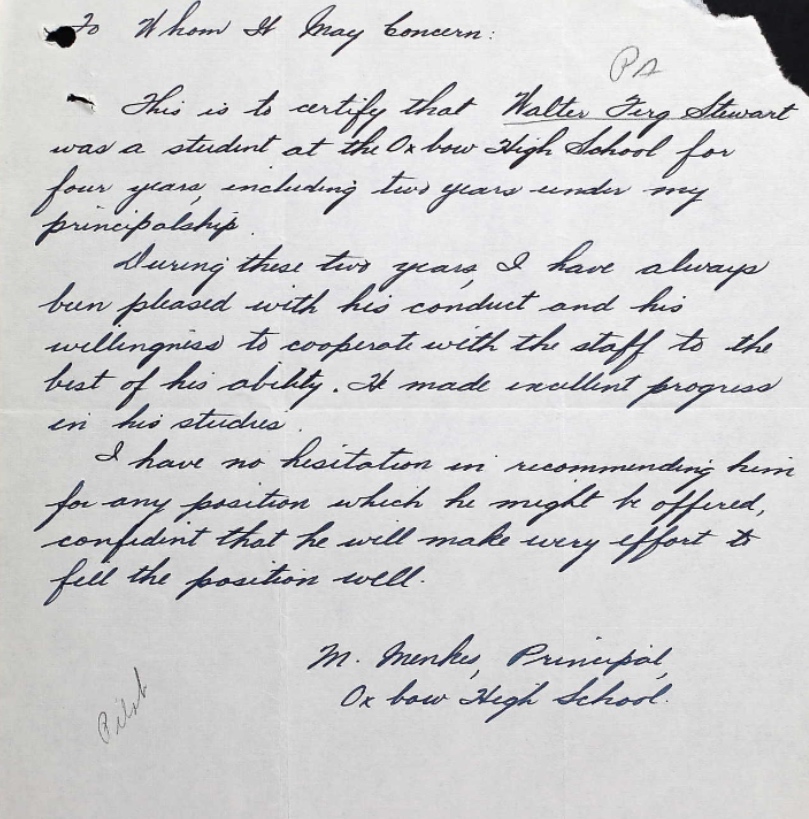 To Whom It May Concern:
PA
This is to certify that Walter Ferg Stewart
was a student at the Oxbow High School for
four years, including two years under my
principalship.
During these two years, I have always
been pleased with his conduct and his
willingness to cooperate with the staff to the
best of his ability. He made excellent progress
in his studies.
I have no hesitation in recommending him
for any position which he might be offered,
confident that he will make every effort to
fill the position well.
M. Menkes, Principal,
Oxbow High School.
Pilot